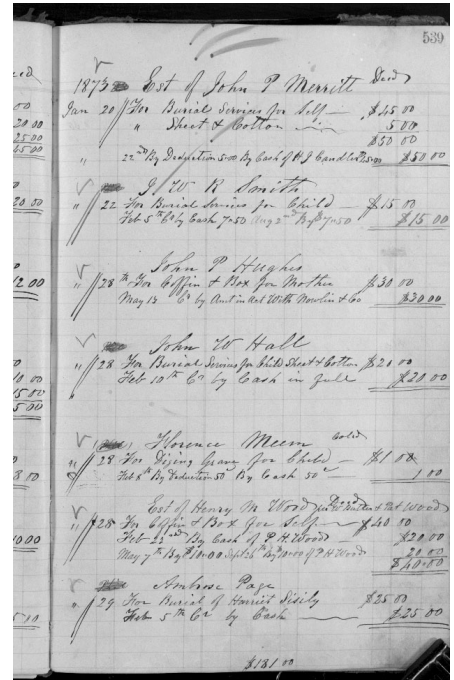 539
1873 Est of John P Merritt Dead
Jan 20 For Burial Services for Self — $45 00
" Sheet & Cotton — 5 00
$50 00
" 22nd By Deduction 5.00 By Cash of H J Candler $50 00
J W R Smith
" 22 For Burial Services for Child — $15 00
Feb 5th Cr by Cash 7.50 Aug 2nd By $7.50 $15 00
John P Hughes
" 28th For Coffin & Box for Mother $30 00
May 13 Cr by Amt in act With Nowlin & Co $30.00
John W Hall
" 28 For Burial Servises for Child Sheet & Cotton $20 00
Feb 10th Cr by Cash in full $20 00
Florence Meem Cold
" 28 For Diging Grave for Child — $1 00
Feb 8th By Deduction 50 By Cash 50c 1 00
Est of Henry M Wood Dead & Pat Wood
" 28 For Coffin & Box for Self — $40 00
Feb 22nd By Cash of P. H. Wood $20.00
May 7th By $10.00 Sept 26th By $10.00 of P H Wood 20 00
$40.00
Ambrose Page
" 29 For Burial of Harriet Sisily $25 00
Feb 5th Cr by Cash — $25 00
$181 00
00
20 00
25 00
45 00
20 00
12 00
10 00
15 00
5 00
3 00
10.00
5 00